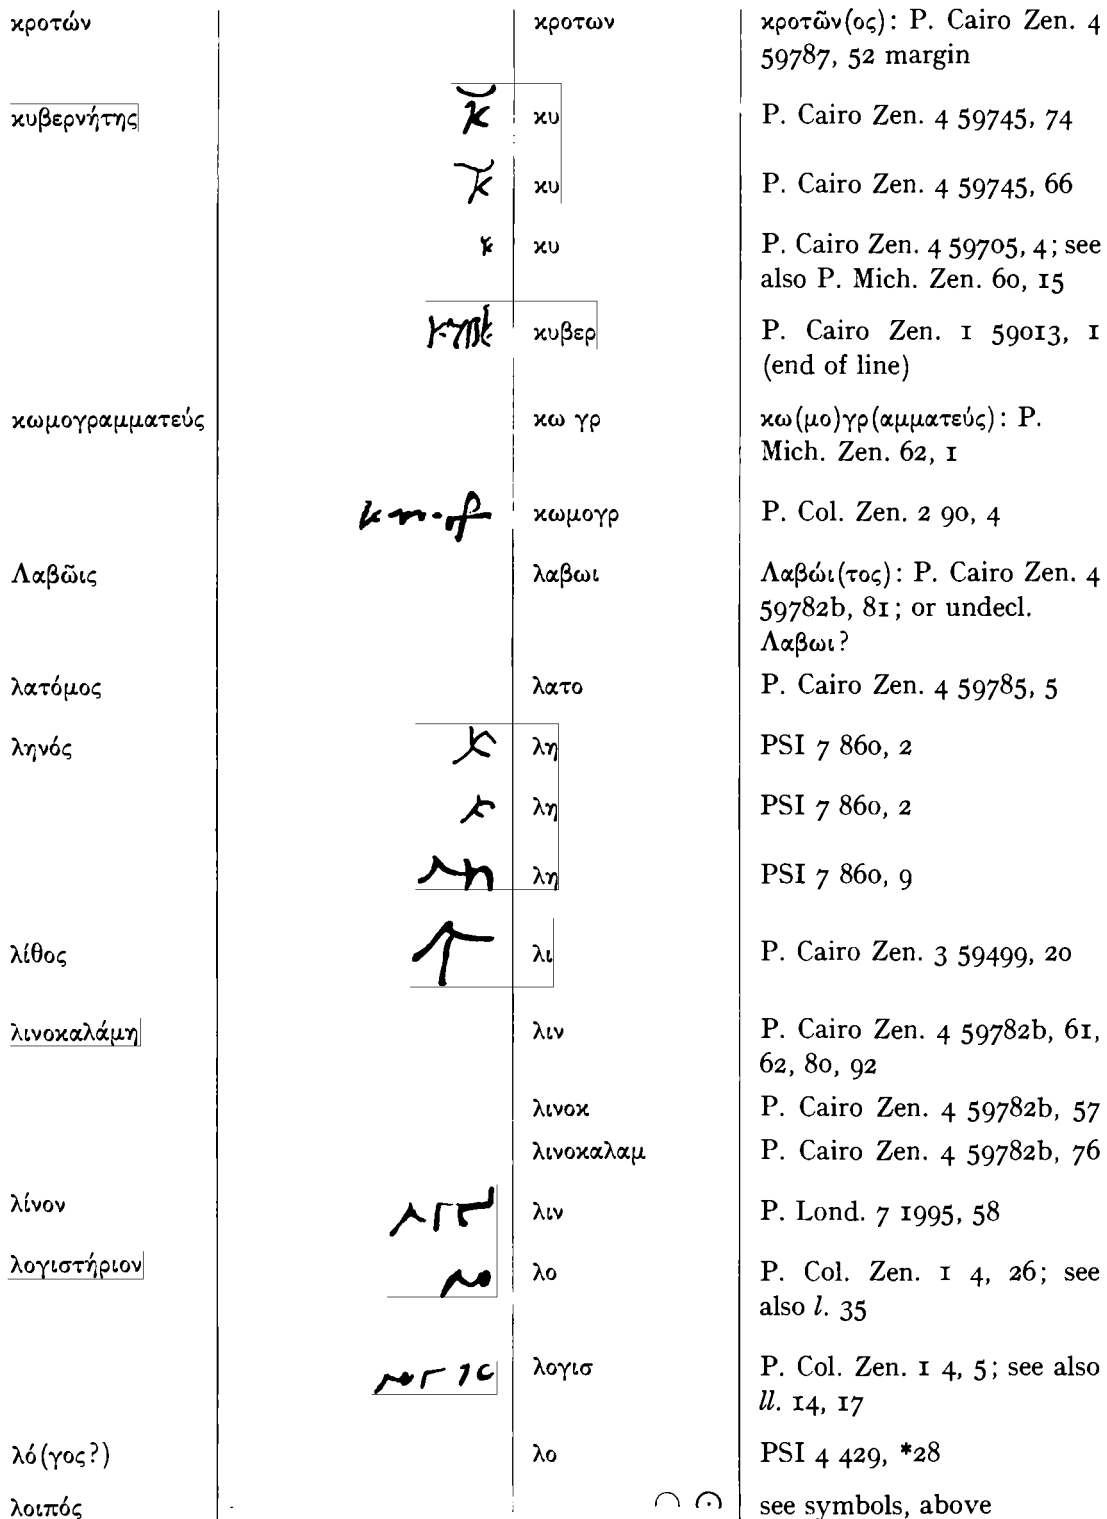 κροτών κροτων κροτῶν(ος): P. Cairo Zen. 4
59787, 52 margin
κυβερνήτης κυ P. Cairo Zen. 4 59745, 74
κυ P. Cairo Zen. 4 59745, 66
κυ P. Cairo Zen. 4 59705, 4; see
also P. Mich. Zen. 60, 15
κυβερ P. Cairo Zen. 1 59013, 1
(end of line)
κωμογραμματεύς κω γρ κω(μο)γρ(αμματεύς): P.
Mich. Zen. 62, 1
κωμογρ P. Col. Zen. 2 90, 4
Λαβῶις λαβωι Λαβώι(τος): P. Cairo Zen. 4
59782b, 81; or undecl.
Λαβωι?
λατόμος λατο P. Cairo Zen. 4 59785, 5
ληνός λη PSI 7 860, 2
λη PSI 7 860, 2
λη PSI 7 860, 9
λίθος λι P. Cairo Zen. 3 59499, 20
λινοκαλάμη λιν P. Cairo Zen. 4 59782b, 61,
62, 80, 92
λινοκ P. Cairo Zen. 4 59782b, 57
λινοκαλαμ P. Cairo Zen. 4 59782b, 76
λίνον λιν P. Lond. 7 1995, 58
λογιστήριον λο P. Col. Zen. 1 4, 26; see
also l. 35
λογισ P. Col. Zen. 1 4, 5; see also
ll. 14, 17
λό(γος?) λο PSI 4 429, *28
λοιπός see symbols, above